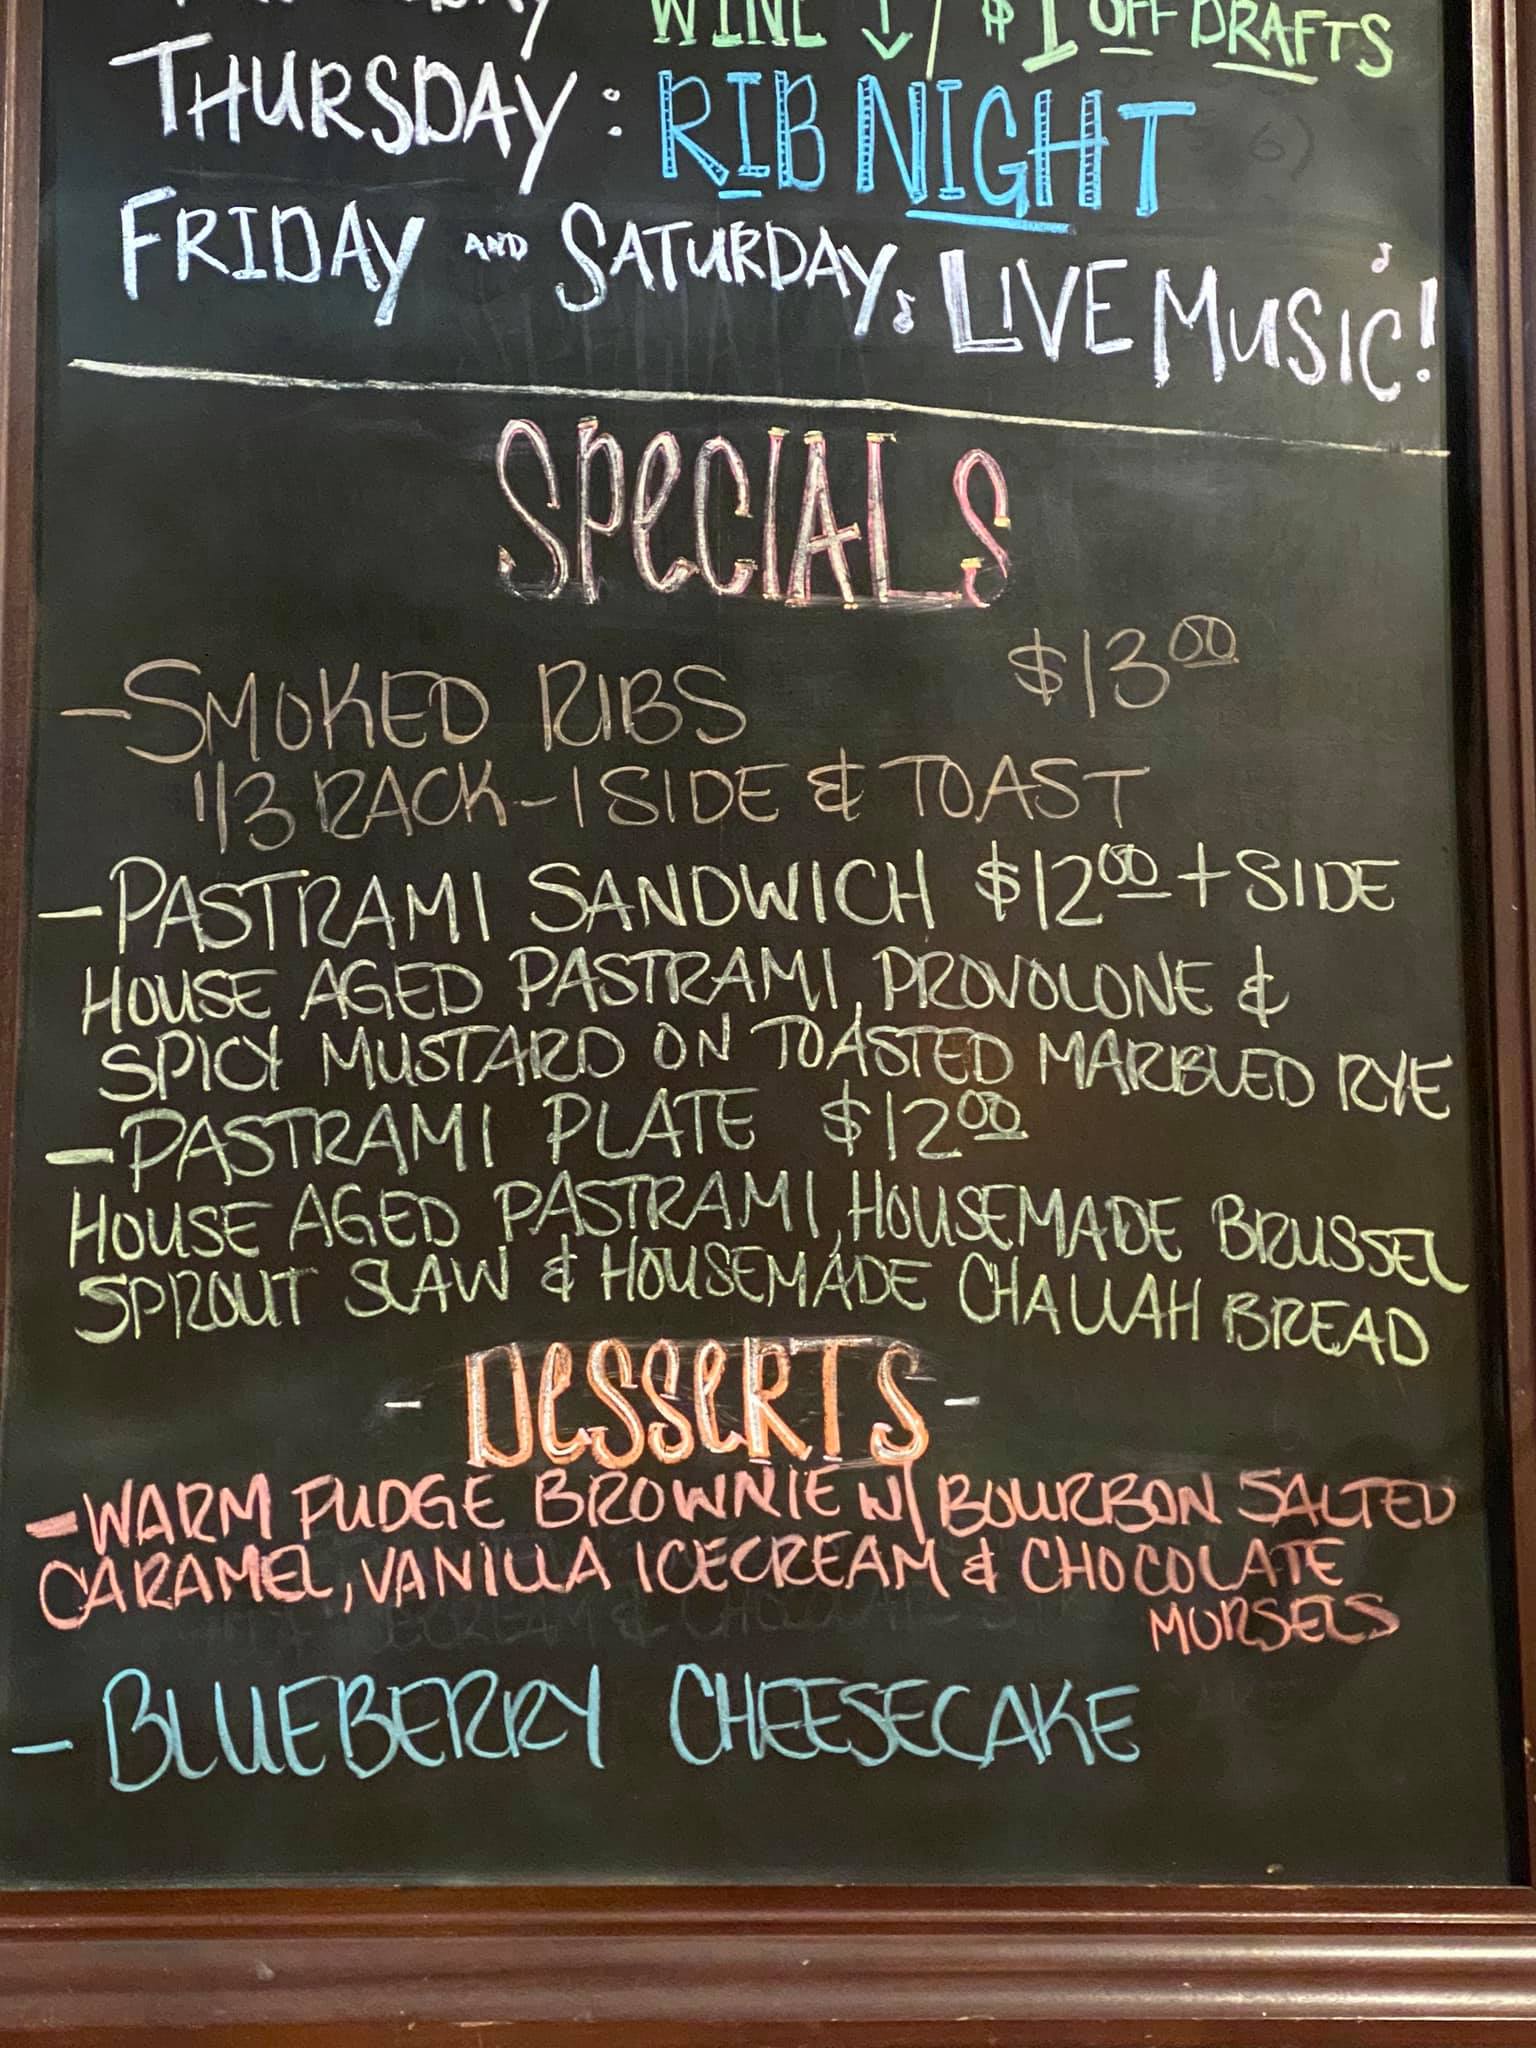 WINE ↓ / $1 OFF DRAFTS
THURSDAY: RIB NIGHT
FRIDAY AND SATURDAY, ♪ LIVE MUSIC! ♪
SPECIALS
- SMOKED RIBS $13.00
1/3 RACK - 1 SIDE & TOAST
- PASTRAMI SANDWICH $12.00 + SIDE
HOUSE AGED PASTRAMI, PROVOLONE &
SPICY MUSTARD ON TOASTED MARBLED RYE
- PASTRAMI PLATE $12.00
HOUSE AGED PASTRAMI, HOUSEMADE BRUSSEL
SPROUT SLAW & HOUSEMADE CHALLAH BREAD
- DESSERTS -
- WARM FUDGE BROWNIE W/ BOURBON SALTED
CARAMEL, VANILLA ICECREAM & CHOCOLATE
MORSELS
- BLUEBERRY CHEESECAKE